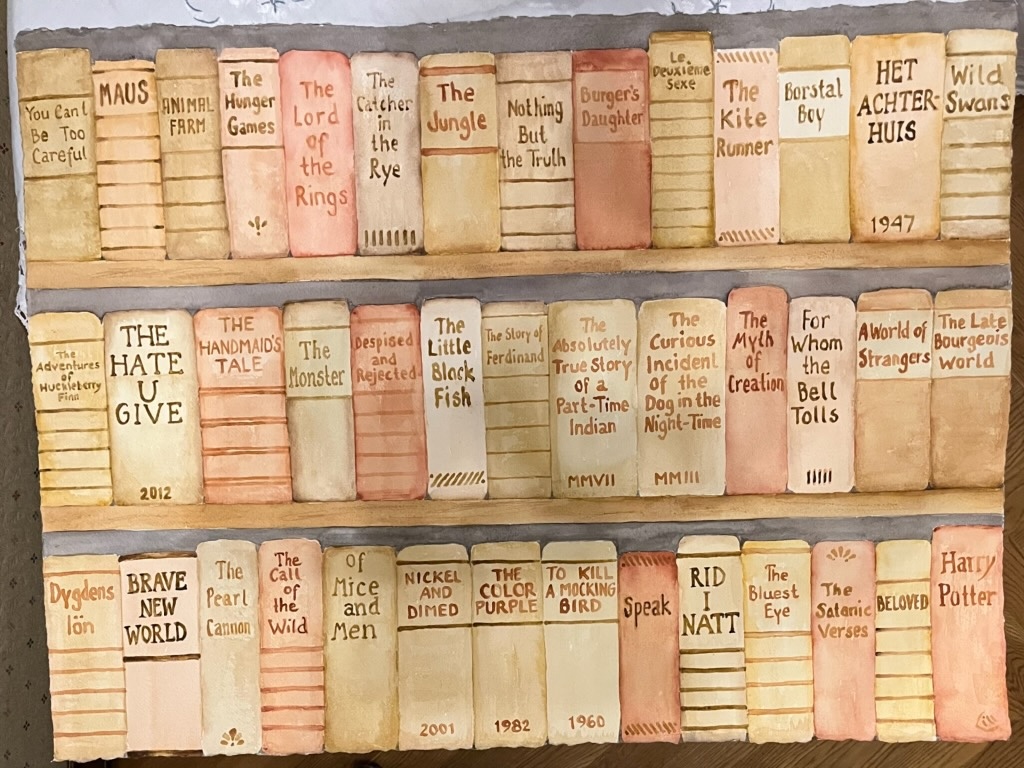 You Can't
Be Too
Careful
MAUS
ANIMAL
FARM
The
Hunger
Games
The
Lord
of
the
Rings
The
Catcher
in
the
Rye
The
Jungle
Nothing
But
the Truth
Burger's
Daughter
Le
Deuxième
Sexe
The
Kite
Runner
Borstal
Boy
HET
ACHTER-
HUIS
1947
Wild
Swans
The
Adventures
of
Huckleberry
Finn
THE
HATE
U
GIVE
2012
THE
HANDMAID'S
TALE
The
Monster
Despised
and
Rejected
The
Little
Black
Fish
The Story of
Ferdinand
The
Absolutely
True Story
of a
Part-Time
Indian
MMVII
The
Curious
Incident
of the
Dog in the
Night-Time
MMIII
The
Myth
of
Creation
For
Whom
the
Bell
Tolls
A World of
Strangers
The Late
Bourgeois
World
Dygdens
lön
BRAVE
NEW
WORLD
The
Pearl
Cannon
The
Call
of the
Wild
Of
Mice
and
Men
NICKEL
AND
DIMED
2001
THE
COLOR
PURPLE
1982
TO KILL
A MOCKING
BIRD
1960
Speak
RID
I
NATT
The
Bluest
Eye
The
Satanic
Verses
BELOVED
Harry
Potter